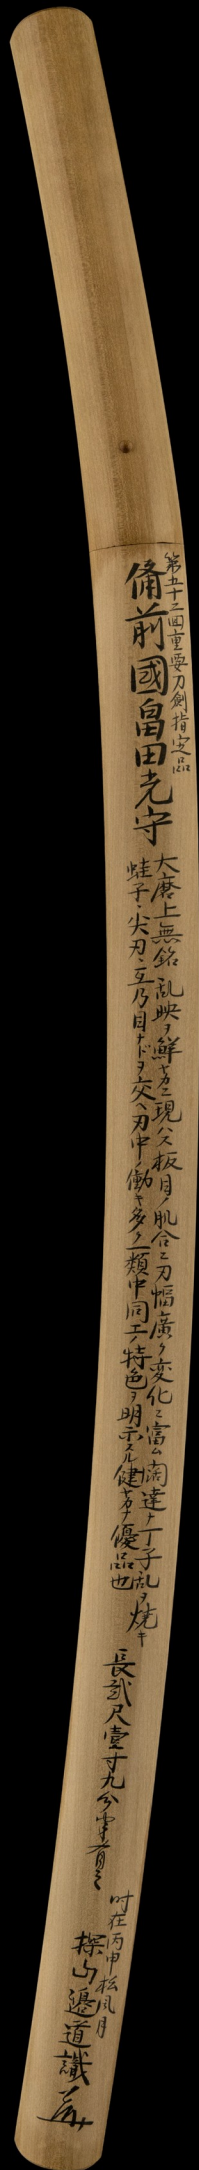 第五十二回重要刀劍指定品
備前國畠田光守
大磨上無銘乱映ヲ鮮ヤカニ現ハス板目ノ肌合ニ刃幅廣ク変化ニ富ム闊達ナ丁子乱ヲ焼キ
蛙子、尖刃、互乃目ナドヲ交ヘ刃中ノ働キ多ク一類中同工ノ特色ヲ明示スル健ヤカナ優品也
長貳尺壹寸九分半有之
時在丙申松風月
探山邉道識